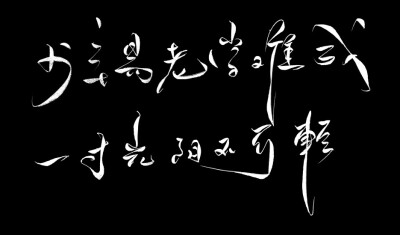 少年易老学难成
一寸光阴不可輕